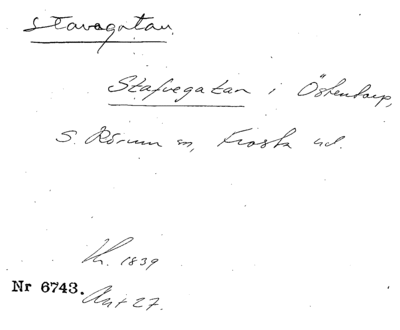 Stavagatan
Stafvegatan i Östentorp,
S. Rörum sn, Frosta hd.
Kh. 1839
Nr 6743. Akt 27.